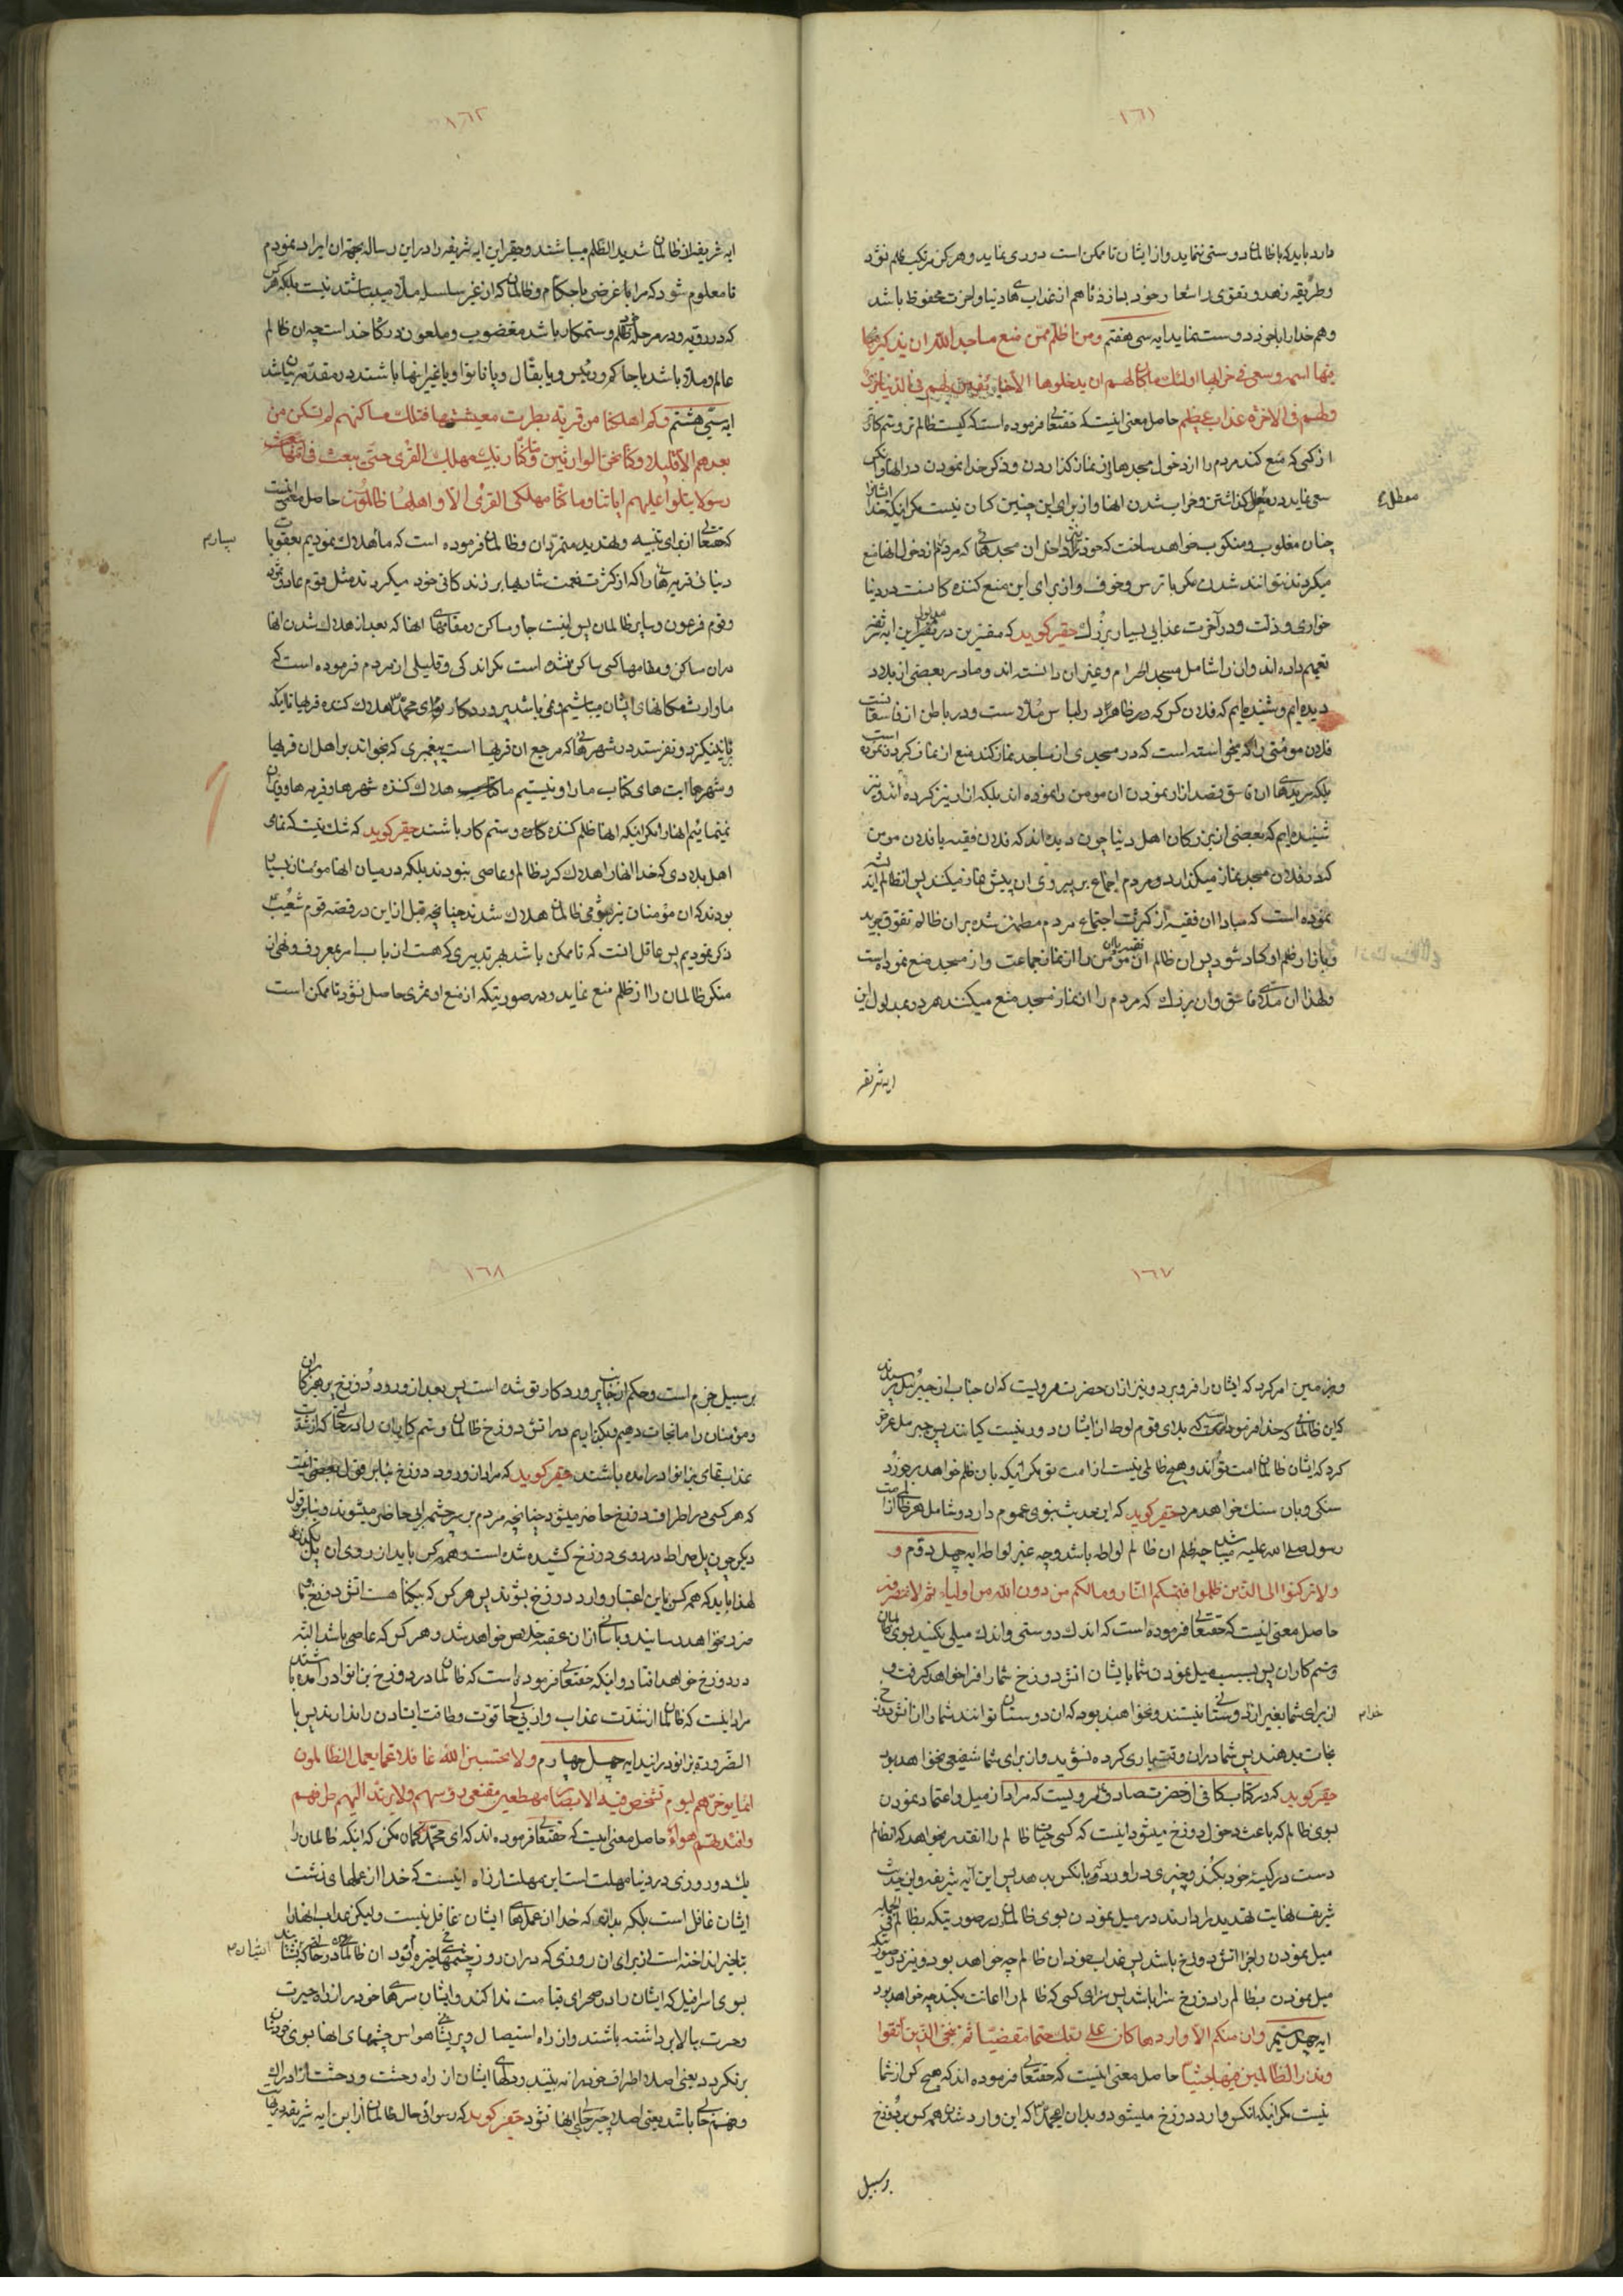 ١٦١
دارد باید که با ظالمان دوستی ننماید و از ایشان تا ممکن است دوری نماید و هر کس مرتکب ظلم نشود
و طریقه زهد و تقوی را شعار خود بسازد تا هم از عذاب های دنیا و آخرت محفوظ باشد
و هم خدا را با خود دوست نماید ایه سی هفتم ومن اظلم ممن منع مساجد الله ان یذکر
فیها اسمه وسعی فی خرابها اولئك ما کان لهم ان یدخلوها الا خائفین لهم فی الدنیا خزی
ولهم فی الاخرة عذاب عظیم حاصل معنی اینست که حقتعالی فرموده است که کیست ظالم تر و ستم کارتر
از کسی که منع کند مردم را از دخول مسجدها و از نماز کذاردن و ذکر خدا نمودن در انها و
سعی نماید در معطل کذاشتن و خراب شدن انها و از برای این چنین کسان نیست مکر اینکه خدا ایشانرا
چنان مغلوب و منکوب خواهد ساخت که خود داخل ان مسجدهائی که مردم را از دخول انها منع
میکردند نتوانند شدن مکر با ترس و خوف و از برای این منع کننده کانست در دنیا
خواری و ذلت و در آخرت عذابی بسیار بزرك حقیر کوید که مفسرین در تفسیر این ایه شریفه
تعمیم داده اند و ان را شامل مسجد الحرام و غیر ان دانسته اند و ما در بعضی از بلاد
دیده ایم و شنیده ایم که فلان کس که در ظاهر در لباس ملا است و در باطن از فاسقان است
فلان مومنی را که میخواسته است که در مسجدی از مساجد نماز کند منع از نماز کردن نموده است
بلکه مریدهای ان فاسق قصد ازار نمودن ان مومن را نموده اند بلکه ازار نیز کرده اند و نیز
شنیده ایم که بعضی از بزرکان اهل دنیا چون دیده اند که فلان فقیه یا فلان مومن
که در فلان مسجد نماز میکذارد و مردم اجتماع بر پیروی ان پیش نماز میکنند پس ان ظالم اندیشه
نموده است که مبادا ان فقیه از کثرت اجتماع مردم مطمئن شده بر ان ظالم تفوق جوید
و بازار ظلم او کساد شود پس ان ظالم ان مومن را از نماز جماعت و از مسجد منع نموده است
و لهذا ان ملای فاسق و ان بزرك که مردم را از نماز مسجد منع میکنند هر دو بمدلول این
ایه شریفه
معطل
١٦٢
ایه شریفه از ظالمان شدید الظلم میباشند و حقیر این ایه شریفه را در این رساله بجهة ان ایراد نمودم
تا معلوم شود که مرا با غرضی با حکام و ظالمان که از غیر سلسله ملا میباشند نیست بلکه هر کس
که در رویه و در مرحله ظلم و ستمکار باشد مغضوب و ملعون درکاه خداست چه ان ظالم
عالم و ملا باشد یا حاکم و رئیس و یا بقال و یا نانوا و یا غیر اینها باشند
ایه سی هشتم وکم اهلکنا من قریة بطرت معیشتها فتلك مساکنهم لم تسکن من
بعدهم الا قلیلا وکنا نحن الوارثین وما کان ربك مهلك القری حتی یبعث فی امها
رسولا یتلوا علیهم ایاتنا وما کنا مهلکی القری الا واهلها ظالمون حاصل معنی اینست
که حقتعالی از برای تنبیه و تهدید متمردان و ظالمان فرموده است که ما هلاك نمودیم بعقوبات
دنیائی قریه هائی را که از کثرت نعمت بسیار بر زندکانی خود میکردند مثل قوم عاد و ثمود
و قوم فرعون و سایر ظالمان پس اینست جا و مساکن و مقامهای انها که بعد از هلاك شدن انها
در ان مساکن و مقامها کسی ساکن نشده است مکر اندکی و قلیلی از مردم و فرموده است که
ما وارث مکانهای ایشان میباشیم و نمی باشد پروردکار تو ای محمد هلاك کننده قریها تا اینکه
برانکیزد و نفرستد در شهرهائی که مرجع ان قریها است پیغمبری که بخواند بر اهل ان قریها
و شهرها ایت های کتاب ما را و نیستیم ما هلاك کننده شهرها و قریه ها و ویران
نمینمائیم انها را مکر اینکه انها ظلم کننده کان و ستم کار باشند حقیر کوید که شك نیست که تمامی
اهل بلادی که خدا انها را هلاك کرد ظالم و عاصی نبودند بلکه در میان انها مومنان بسیار
بودند که ان مؤمنان نیز بشومی ظالمان هلاك شدند چنانچه قبل از این در قصه قوم شعیب
ذکر نمودیم پس عاقل انست که تا ممکن باشد بهر تدبیری که هست از باب امر بمعروف و نهی از
منکر ظالمان را از ظلم منع نماید و در صورتیکه از منع او ثمری حاصل نشود تا ممکن است
١٦٧
و بزمین امر کرد که ایشان را فرو برد و نیز از ان حضرت مرویست که ان جناب از جبرئیل پرسیدند
که این ظالمانی که خدا فرموده است که بلای قوم لوط از ایشان دور نیست کیانند پس جبرئیل عرض
کرد که ایشان ظالمان امت تو اند و هیچ ظالمی نیست از امت تو مکر اینکه بان ظلم خواهد برخورد
سنکی و بان سنك خواهد مرد حقیر کوید که این حدیث نبوی عموم دارد و شامل هر ظالمی از امت
رسول صلی الله علیه میباشد چه ظلم ان ظالم لواطه باشد و چه غیر لواطه ایه چهل دوم و
ولا ترکنوا الی الذین ظلموا فتمسکم النار ومالکم من دون الله من اولیاء ثم لا تنصرون
حاصل معنی اینست که حقتعالی فرموده است که اندك دوستی و اندك میلی نکنید بسوی ظالمان
و ستم کاران پس بسبب میل نمودن شما بایشان اتش دوزخ شما را فرا خواهد کرفت و
از برای شما بغیر از خدا دوستانی نیستند و نخواهند بود که ان دوستان توانند شما را از اتش دوزخ
نجات بدهند پس شما در ان وقت یاری کرده نشوید و از برای شما شفیعی نخواهد بود
حقیر کوید که در کتاب کافی از حضرت صادق مرویست که مراد از میل و اعتماد نمودن
بسوی ظالم که باعث دخول دوزخ میشود اینست که کسی حیات ظالم را انقدر بخواهد که ان ظالم
دست در کیسه خود بکند و چیزی در اورد و بانکس بدهد پس این آیه شریفه و این حدیث
شریف نهایت تهدید را دارند در میل نمودن بسوی ظالمان در صورتیکه بظالم فی الجمله
میل نمودن را جزا اتش دوزخ باشد پس عذاب خود ان ظالم چه خواهد بود و نیز در صورتیکه
میل نمودن بظالم را دوزخ سزا باشد پس سزای کسی که ظالم را اعانت بکند چه خواهد بود
ایه چهل سیم وان منکم الا واردها کان علی ربك حتما مقضیا ثم ننجی الذین اتقوا
ونذر الظالمین فیها جثیا حاصل معنی اینست که حقتعالی فرموده اند که هیچ کس از شما
نیست مکر اینکه انکس وارد دوزخ میشود و بدان ای محمد که این وارد شدن همه کس بر دوزخ
بر سبیل
١٦٨
بر سبیل جزم است و حکم از جانب پروردکار تو شده است پس بعد از ورود دوزخ پرهیزکاران
و مؤمنان را ما نجات دهیم و بکذاریم در اتش دوزخ ظالمان و ستم کاران را در حالتی که از شدت
عذاب بزانو در امده باشند حقیر کوید که مراد از ورود دوزخ بنابر قول بعضی اینست
که هر کسی در اطراف دوزخ حاضر میشود چنانچه مردم بر سر چشمه ابی حاضر میشوند و بنابر قول
دیکر چون پل صراط در روی دوزخ کشیده شده است و همه کس باید از روی ان پل بکذرد
لهذا باید که همه کس باین اعتبار وارد دوزخ بشوند پس هر کس که بیکناه هست اتش دوزخ باو
ضرر نخواهد رسانید و باسانی از ان عقبه خلاص خواهد شد و هر کس که عاصی باشد البته
در دوزخ خواهد افتاد و اینکه حقتعالی فرموده است که ظالمان در دوزخ بزانو در امده باشند
مراد اینست که ظالمان از شدت عذاب و از بی حالی قوت و طاقت ایستادن را ندارند پس با
الضروره بزانو درایند ایه چهل چهارم ولا تحسبن الله غافلا عما یعمل الظالمون
انما یؤخرهم لیوم تشخص فیه الابصار مهطعین مقنعی رؤسهم ولا یرتد الیهم طرفهم
وافئدتهم هواء حاصل معنی اینست که حقتعالی فرموده اند که ای محمد کمان مکن که اینکه ظالمان را
یك دو روزی در دنیا مهلت است این مهلت از راه اینست که خدا از عملهای زشت
ایشان غافل است بلکه بدانکه خدا از عملهای ایشان غافل نیست ولیکن عذاب انها را
بتاخیر انداخته است از برای ان روزی که در ان روز چشمها خیره شود ان ظالمان در حالتی که بشتابند
بسوی اسرافیل که ایشان را در صحرای قیامت ندا کند و ایشان سرهای خود را از راه حیرت
و حسرت بالا برداشته باشند و از راه استیصال و پریشانی هواس چشمهای انها بسوی خودشان
برنکردد یعنی اصلا اطراف خود را نه بینند و دلهای ایشان از راه وحشت و دهشت از ادراك
و فهم خالی باشد یعنی اصلا چیزی حالی انها نشود حقیر کوید که رسوائی حال ظالمان از این ایه شریفه